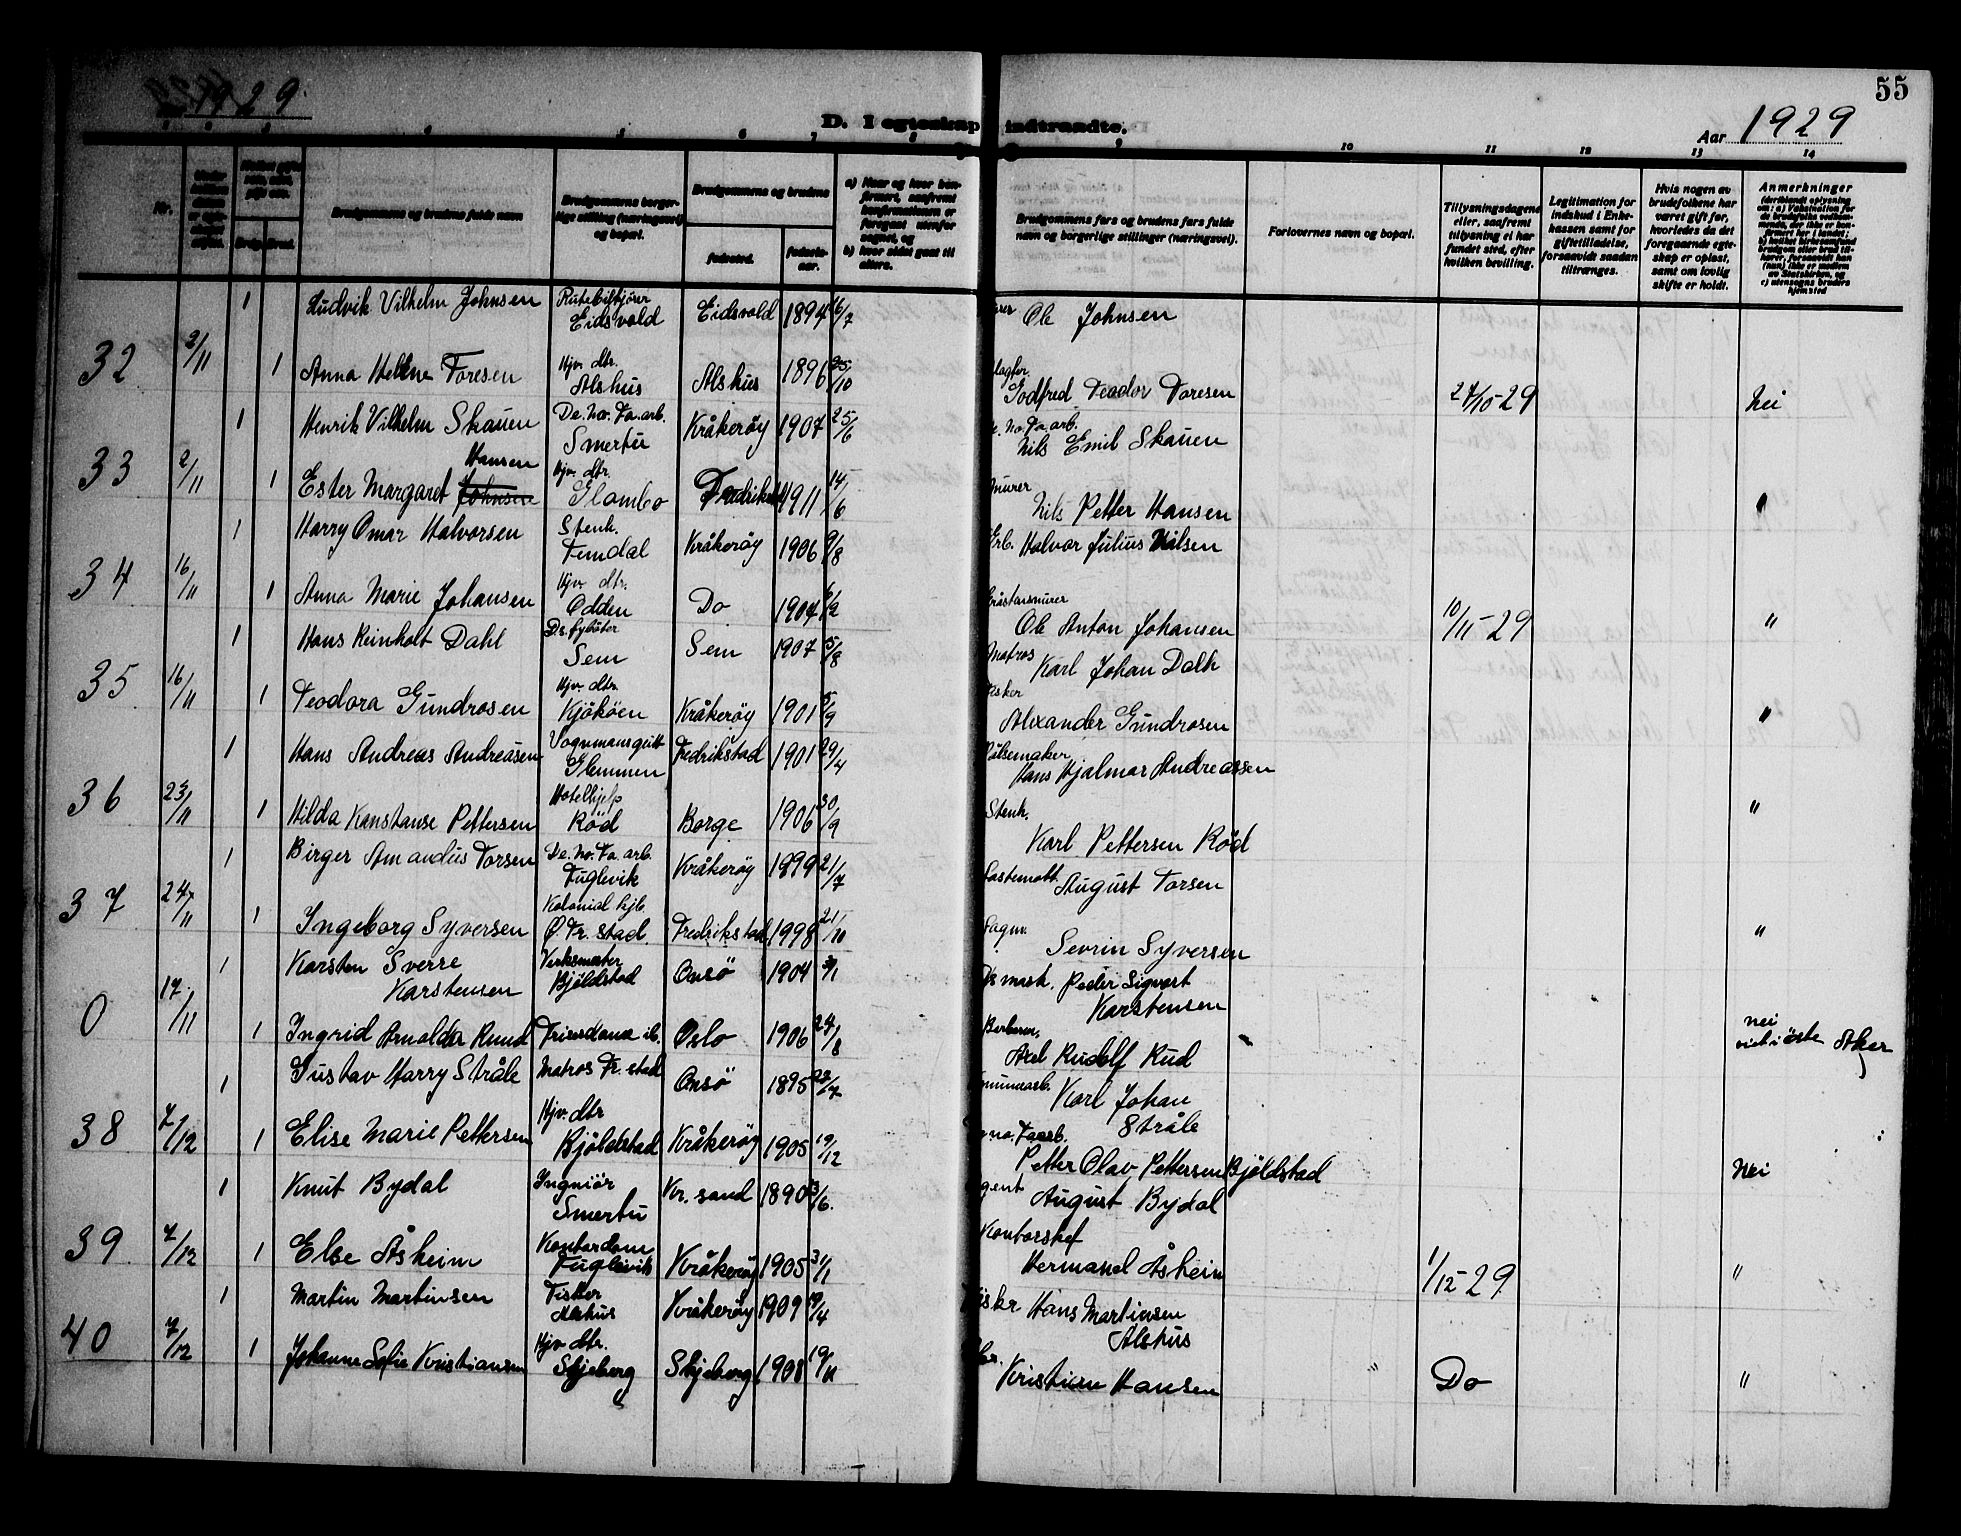 1929
55
D. I egteskap indtraadte.
Aar 1929
Nr.
Brudgommens og brudens fulde navn
Brudgommens borgerlige stilling (næringsvei) og bopæl.
Brudgommens og brudens
fødested.
fødselsaar.
a) Naar og hvor konfirmeret, saafremt konfirmationen er foregaat utenfor sognet, og
b) hvor sidst gaat til alters.
Brudgommens fars og brudens fars fulde navn og borgerlige stillinger (næringsvei).
Forlovernes navn og bopæl.
Tillysningsdagene eller, saafremt tillysning ei har fundet sted, efter hvilken bevilling.
Legitimation for indskud i Enkekassen samt for giftetilladelse, forsaavidt saadan tiltrænges.
Hvis nogen av brudefolkene har været gift før, hvorledes da det foregaaende egteskap er opløst, samt om lovlig skifte er holdt.
Anmerkninger
1 Ludvik Vilhelm Johnsen Rutebilkjører Eidsvold Eidsvold 1894 16/7 Ole Johnsen
32 2/11 1 Anna Helene Toresen Hjv. dtr. Alshus Alshus 1896 25/10 Godfred Teodor Toresen 27/10-29 Nei
1 Henrik Vilhelm Skauen De. No. Fa. arb. Smertu Kråkerøy 1907 25/6 No. Fa. arb. Nils Emil Skauen
33 2/11 1 Ester Margaret Johnsen Hansen Hjv. dtr. Glombo 1911 14/6 murer Nils Petter Hansen "
1 Harry Omar Halvorsen Stenh. Femdal Kråkerøy 1906 9/8 Halvor Julius Nilsen
34 16/11 1 Anna Marie Johansen Hjv. dtr. Odden Do 1904 Ole Anton Johansen 10/11-29 "
1 Hans Reinholt Dahl Sem Sem 1907 5/8 Matros Karl Johan Dalh
35 16/11 1 Teodora Gundrosen Hjv. dtr. Kjøkøen Kråkerøy 1901 5/9 Alexander Gundrosen "
1 Hans Andreas Andreasen Vognmansgutt Glemmen Fredrikstad 1901 29/4 Pølsemaker Hans Hjalmar Andreassen
36 23/11 1 Hilda Konstanse Pettersen Hotelhjelp Rød Borge 1906 30/9 Stenh. Karl Pettersen Rød "
1 Birger Amandus Torsen De. No. Fa. arb. Fuglevik Kråkerøy 1899 21/7 August Torsen
37 24/11 1 Ingeborg Syversen Kolonial hjb. Ø. Fr. stad. Fredrikstad 1998 21/10 Sevrin Syversen "
1 Karsten Sverre Karstensen Bjøldstad Onsø 1904 Peder Sigvart Karstensen
0 17/11 1 Ingrid Arnolda Ruud Oslo 1906 24/8 Axel Rudolf Rud nei viet i østre Aker
1 Gustav Harry Stråle Matros Fr. stad Onsø 1895 23/7 Karl Johan Stråle
38 7/12 1 Elise Marie Pettersen Hjv dtr Bjøldstad Kråkerøy 1905 19/12 Petter Olav Pettersen Bjøldstad Nei
1 Knut Bydal Ingniør Smertu Kr. sand 1890 3/6. August Bydal
39 7/12 1 Else Åsheim Kontordam Fuglevik Kråkerøy 1905 31/1 Kontorshef Hermand Åsheim 1/12-29 "
1 Martin Martinsen Fisker Alshus Kråkerøy 1909 19/4 Hans Martinsen Alshus
40 7/12 1 Johanne Sofie Kristiansen Hjv dtr. Skjeberg Skjeberg 1908 19/11 Kristian Hansen " Do "